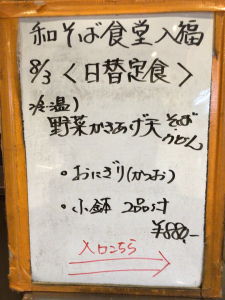 和そば食堂入福
8/3 <日替定食>
冷・温)
野菜かきあげ天そば
うどん
・おにぎり(かつお)
・小鉢 2品付
¥880,-
入口こちら